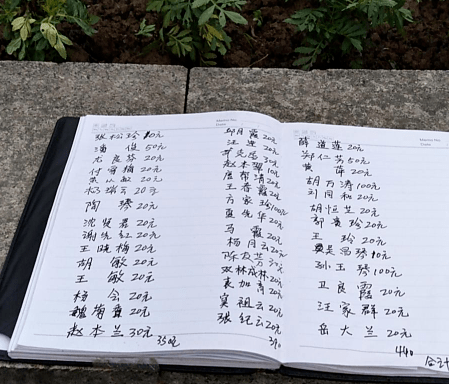 张松珍 10元
潘俊 50元
尤良芬 20元
付雪梅 20元
20元
松瑞云 20元
陶琴 20元
沈贤君 20元
谢红 20元
王晓梅 20元
胡敏 20元
王敏 20元
杨会 20元
魏菊 20元
赵本兰 30元
350元
邱月霞 20元
汪建 20元
30元
赵本翠 10元
唐帮清 20元
王香霞 20元
方家珍 100元
20元
马霞 20元
杨月云 20元
陈友芳
双林成林 20元
袁加育 20元
吴祖云 20元
张纪云 20元
390
薛道莲 20元
郑仁芬 50元
黄萍 20元
胡万涛 100元
刘同和 20元
胡恒芝 20元
郭贵珍 20元
王玲 20元
昌琴 10元
孙玉琴 100元
卫良霞 20元
汪家群 20元
岳大兰 20元
440
合计